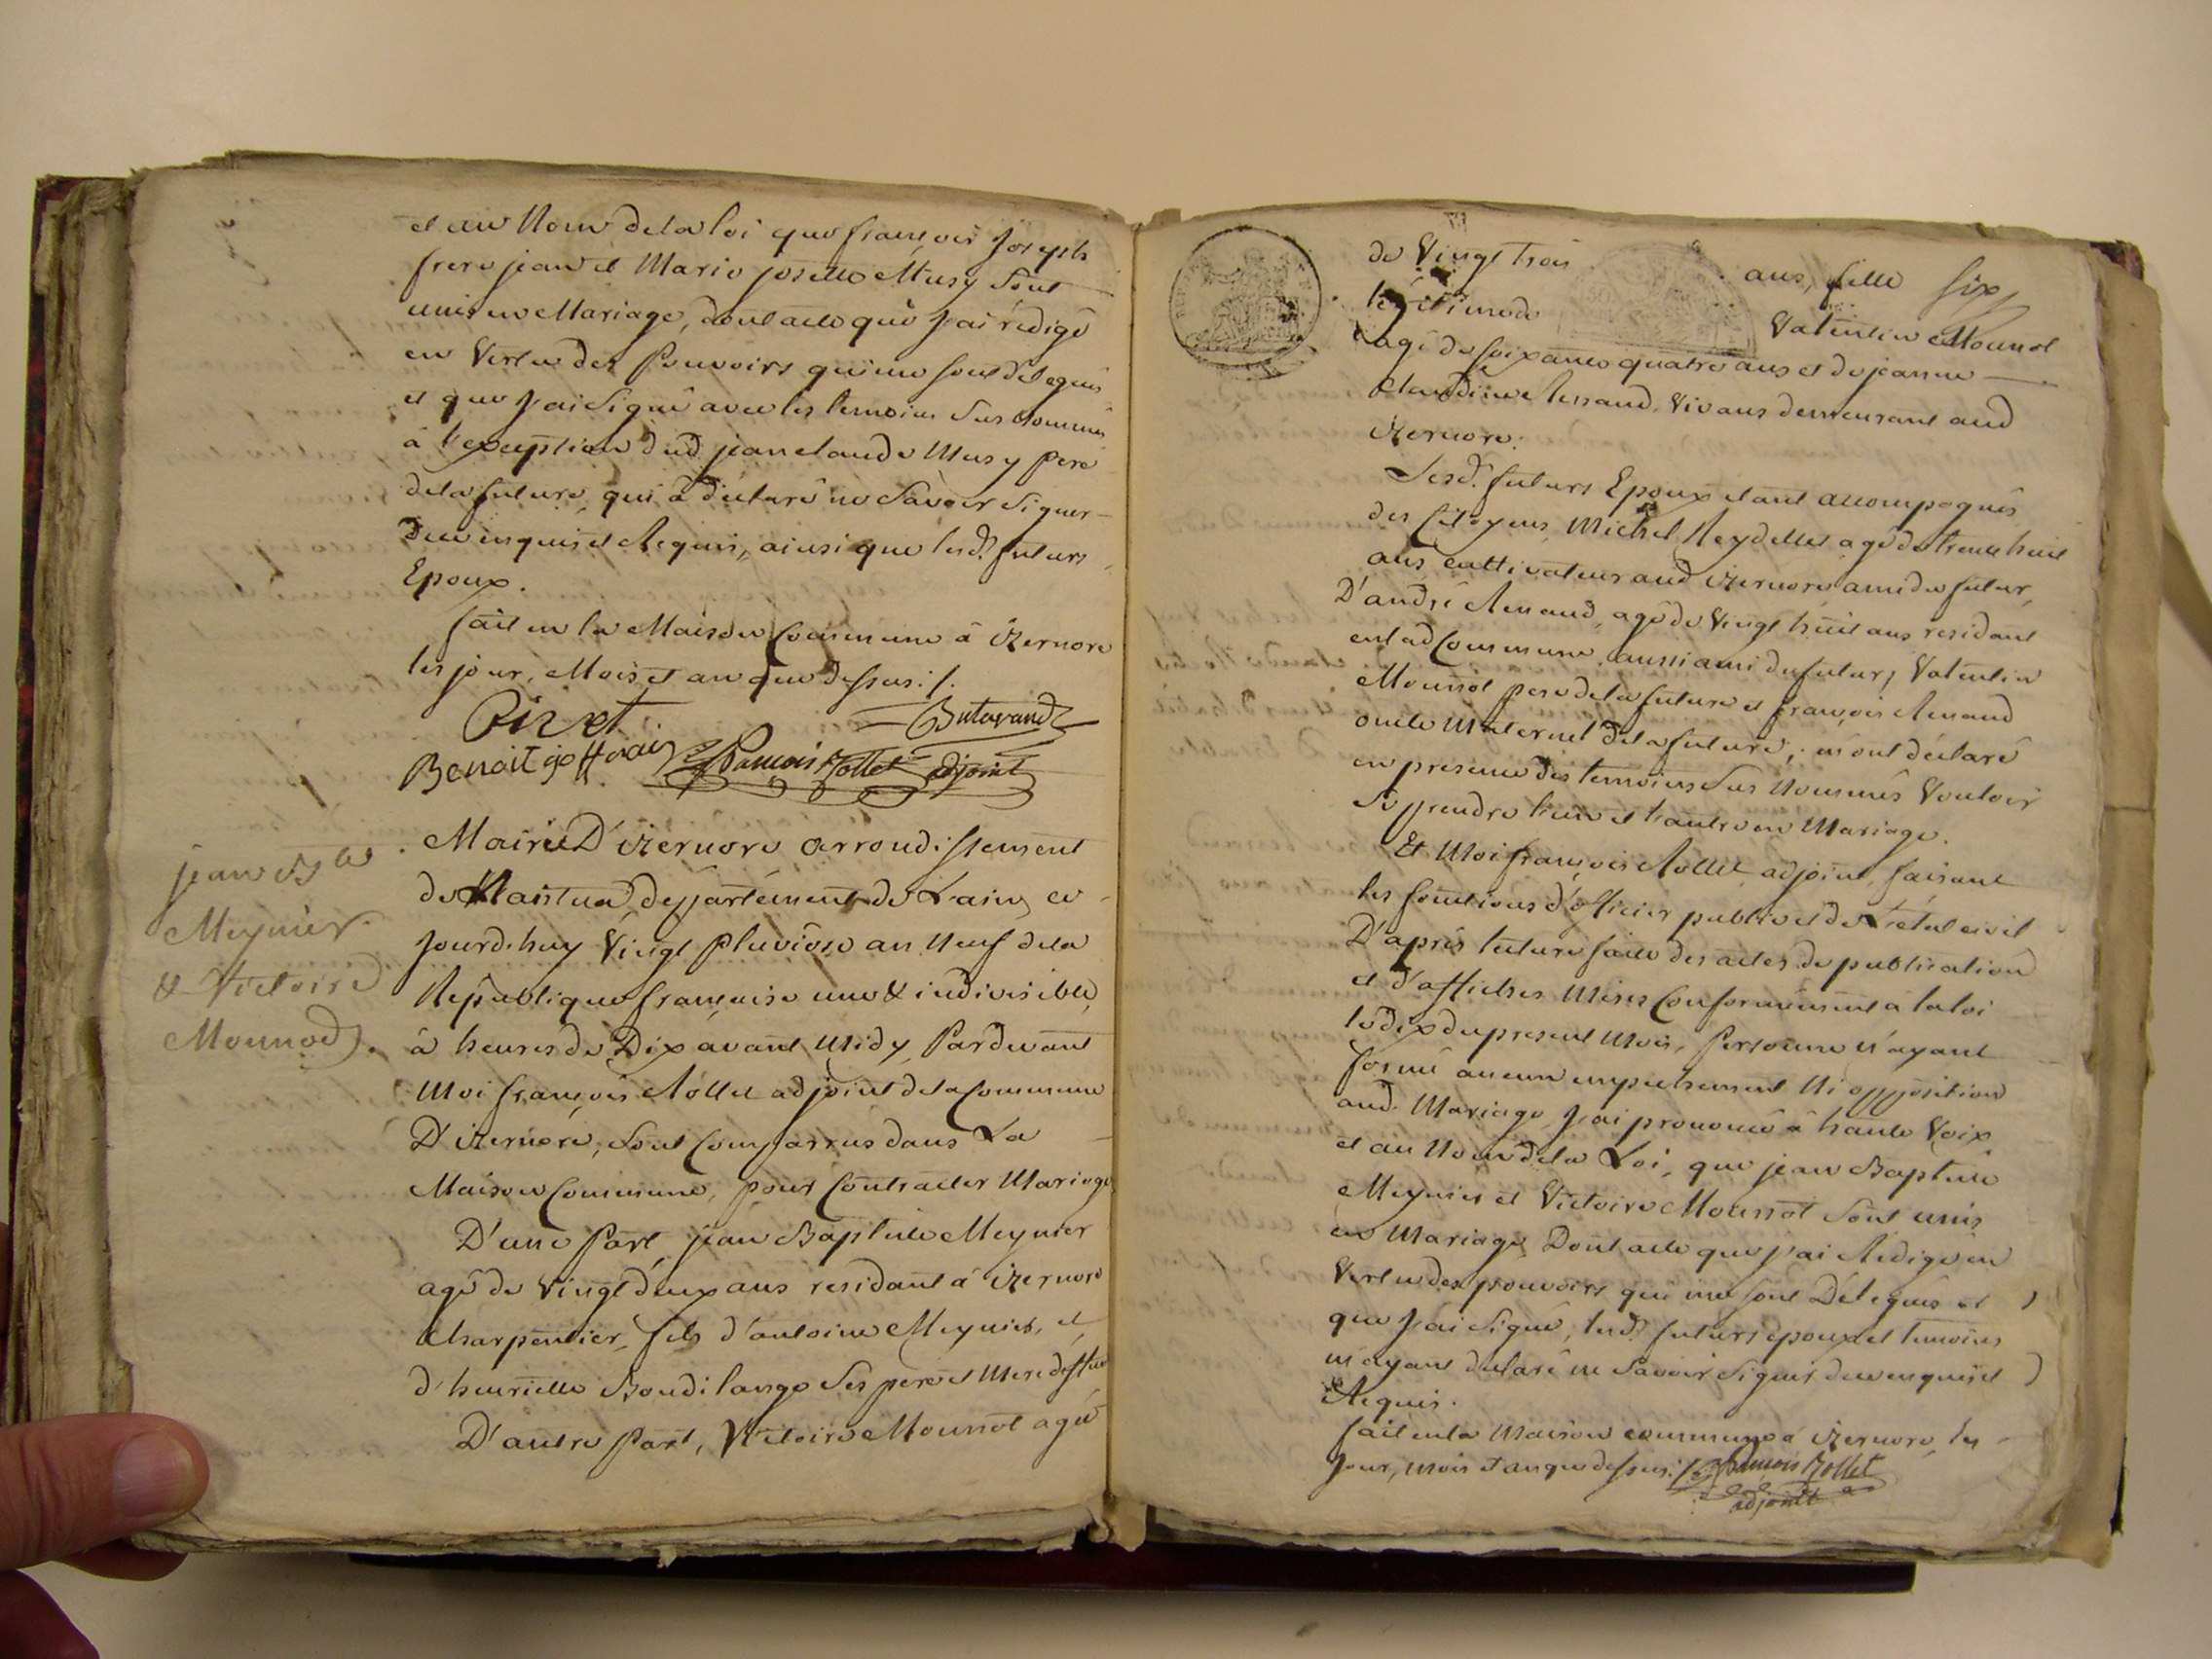 et au Nom de la loi que françois Joseph
frere jean et Marie josette Musy Sont
unis en Mariage, dont acte que j'ai rédigé
en Vertu des Pouvoirs qui me sont délégués
et que j'ai Signé avec les temoins Sus Nommés
à l'exception dud. jean claude Musy pere
de la future, qui à déclaré ne Savoir Signer
Duement enquis et Requis, ainsi que lesd.s futurs
Epoux.
fait en la Maison Commune à izernore
les jour, Mois et an que dessus ./.
Butavand
Benoit François Rollet adjoint
jean Bte
Meynier
& Victoire
Mounod.
Mairie D'izernore arrondissement
de Nantua, departement de L'ain, ce
jourd'huy Vingt pluviose an Neuf de la
République française une & indivisible,
à heures de Dix avant Midy, Pardevant
Moi françois Rollet adjoint de la Commune
D'izernore, Sont Comparrus dans La
Maison Commune, pour Contracter Mariage
D'une Part, jean Baptiste Meynier
agé de Vingt deux ans residant à izernore
Charpentier, fils d'antoine Meynier, et
d'henriette Boudilange Ses pere et Mere
D'autre Part, Victoire Mounot agée
de Vingt trois ans, fille six
légitime de Valentin Mounot
agé de soixante quatre ans et de jeanne
Claudine Renaud, Vivans demeurant aud.
izernore.
Lesd. futurs Epoux etant accompagnés
des Citoyens Michel Reydellet agé de trente huit
ans cultivateur aud. izernore ami du futur,
D'andré Renaud, agé de Vingt huit ans residant
en lad. Commune, aussi ami du futur, Valentin
Mounot pere de la future et françois Renaud
oncle Maternel de la future; m'ont déclaré
en presence des temoins Sus Nommés Vouloir
Se prendre l'un et l'autre en Mariage.
Et Moi françois Rollet adjoint, faisant
les fonctions d'officier public et de L'état civil
D'après lecture faite des actes de publication
et d'affiches Mises Conformément à la loi
le dix du present Mois, Personne n'ayant
formé aucun empechement Ni opposition
aud. Mariage, j'ai prononcé à haute Voix
et au Nom de la Loi, que jean Baptiste
Meynier et Victoire Mounot Sont unis
en Mariage, Dont acte que j'ai Rédigé en
Vertu des pouvoirs qui me sont Délégués et
que j'ai Signé, lesd.s futurs époux et temoins
m'ayant déclaré ne Savoir Signer de ce enquis et
Requis.
fait en la Maison commune à izernore, les
Jour, mois et an que dessus ./. François Rollet
adjoint